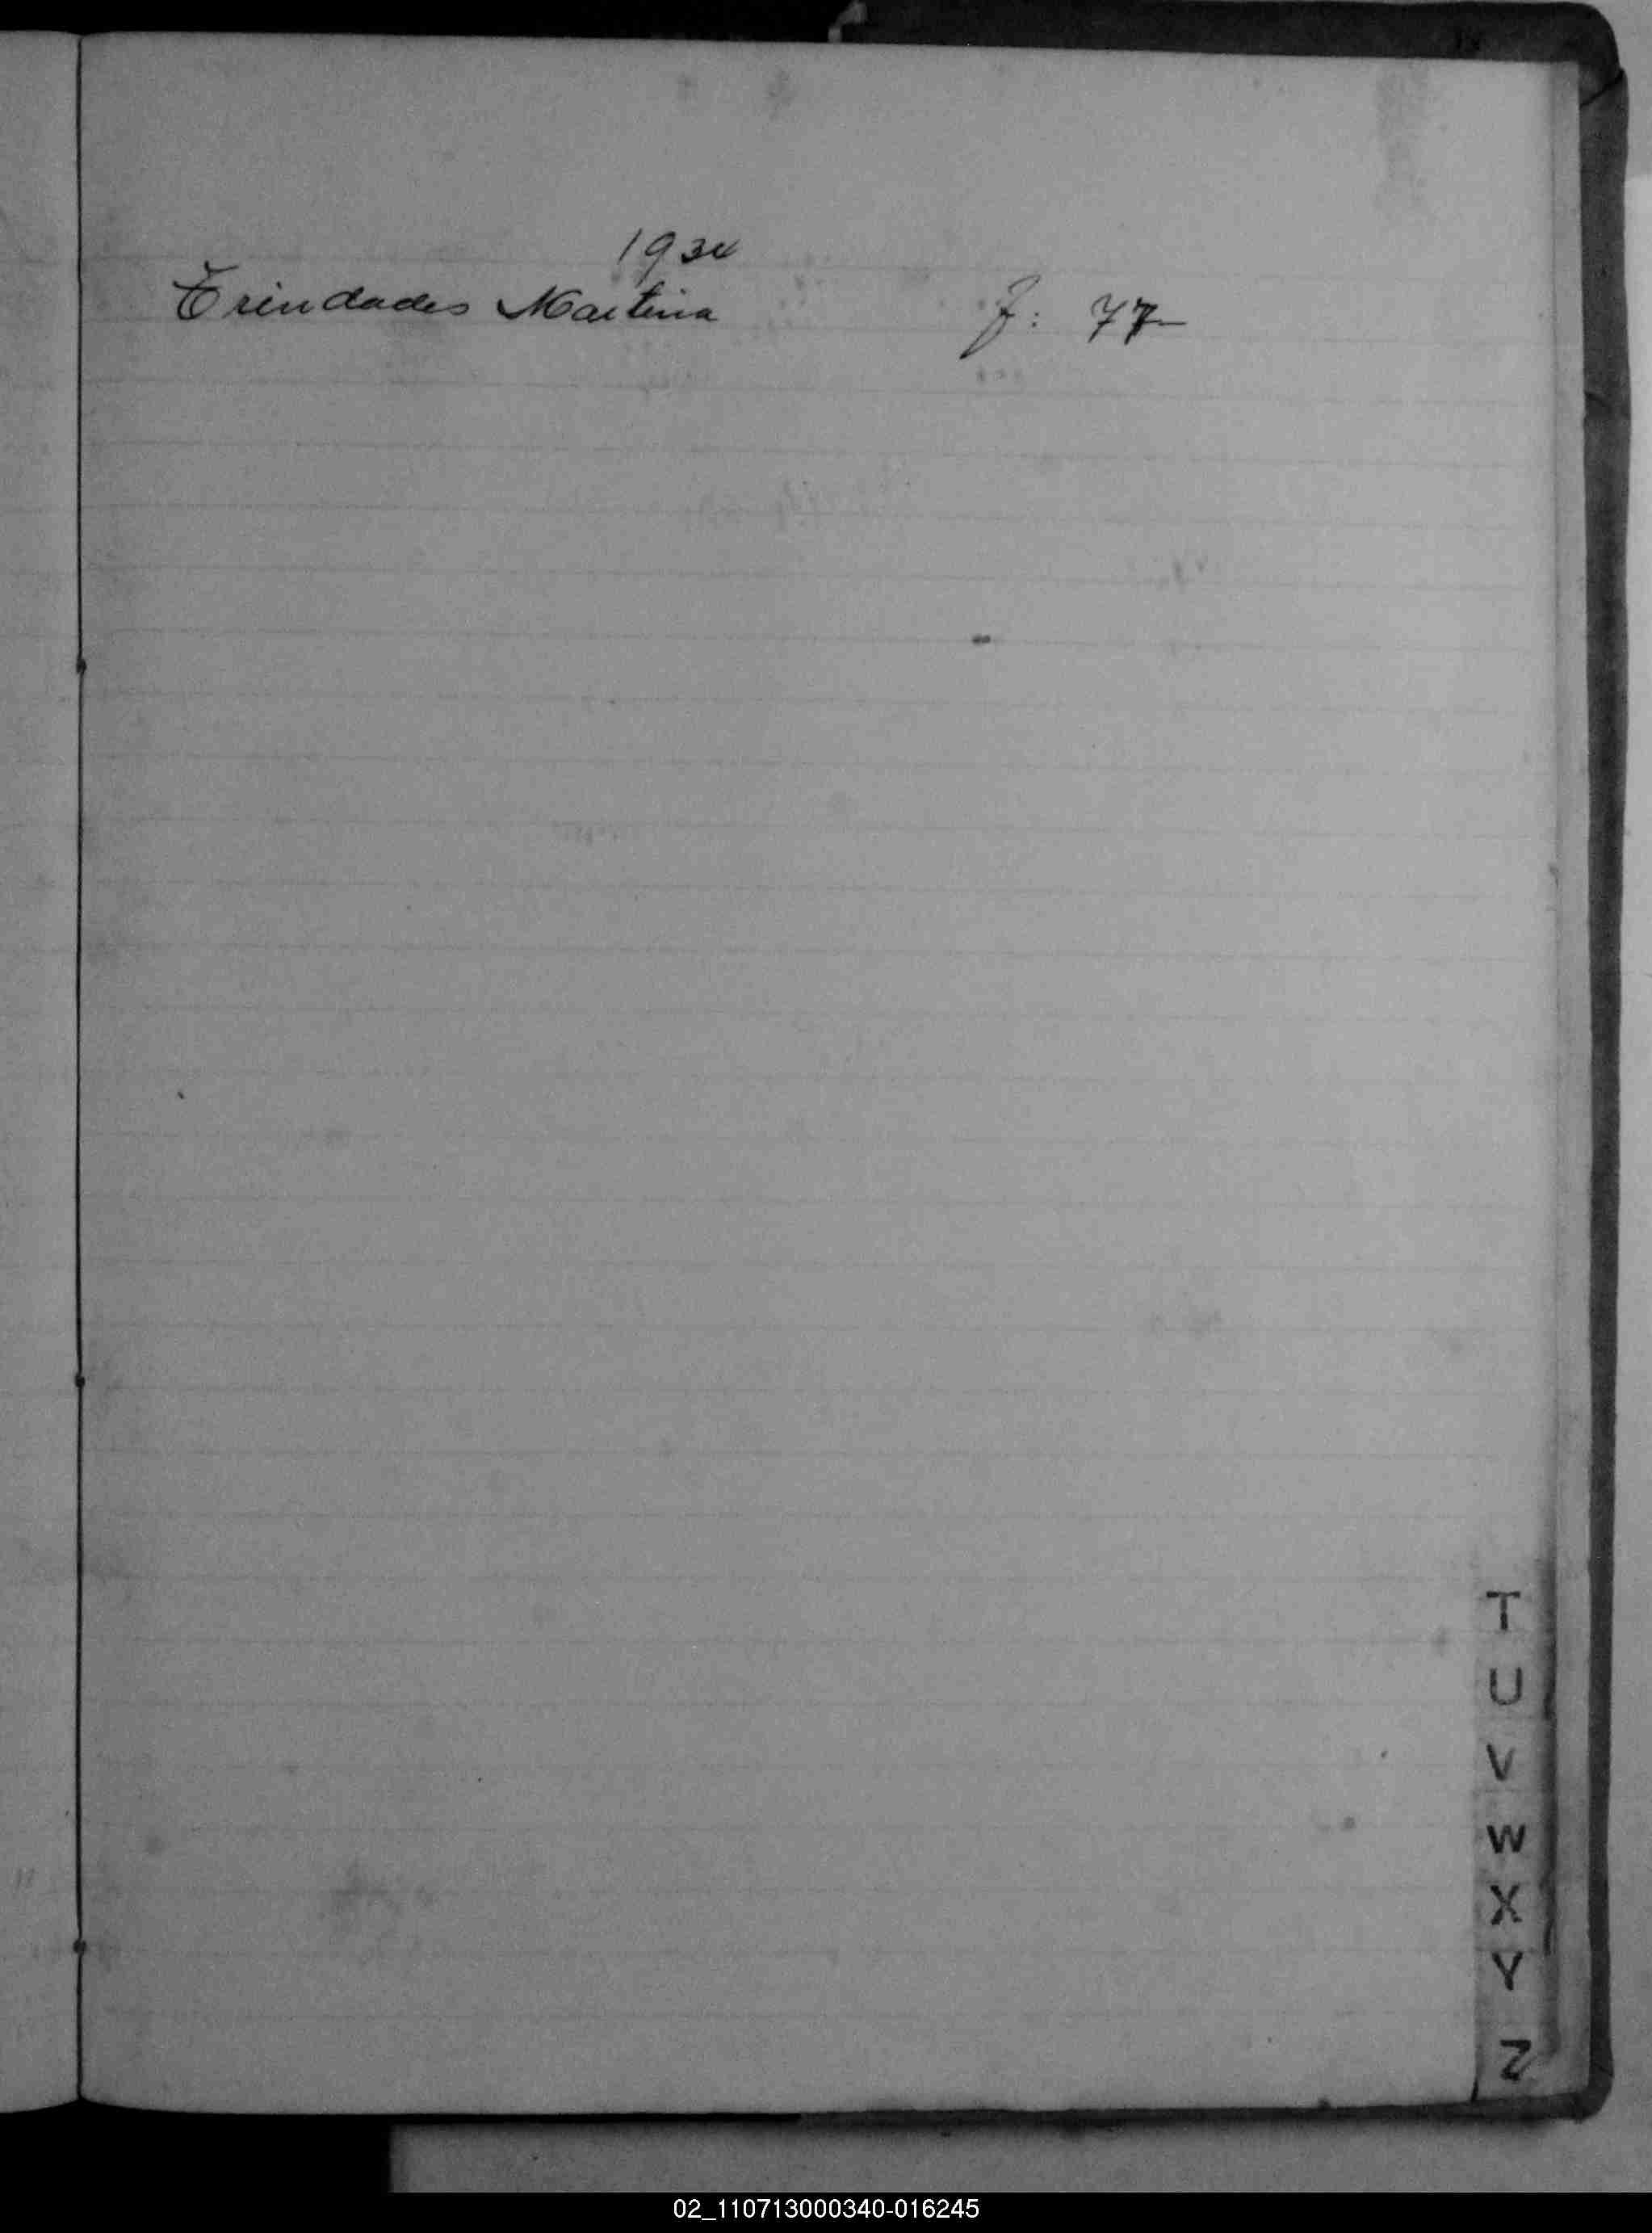 1934
Trindades Martina f: 77
T
U
V
W
X
Y
Z
02_110713000340-016245